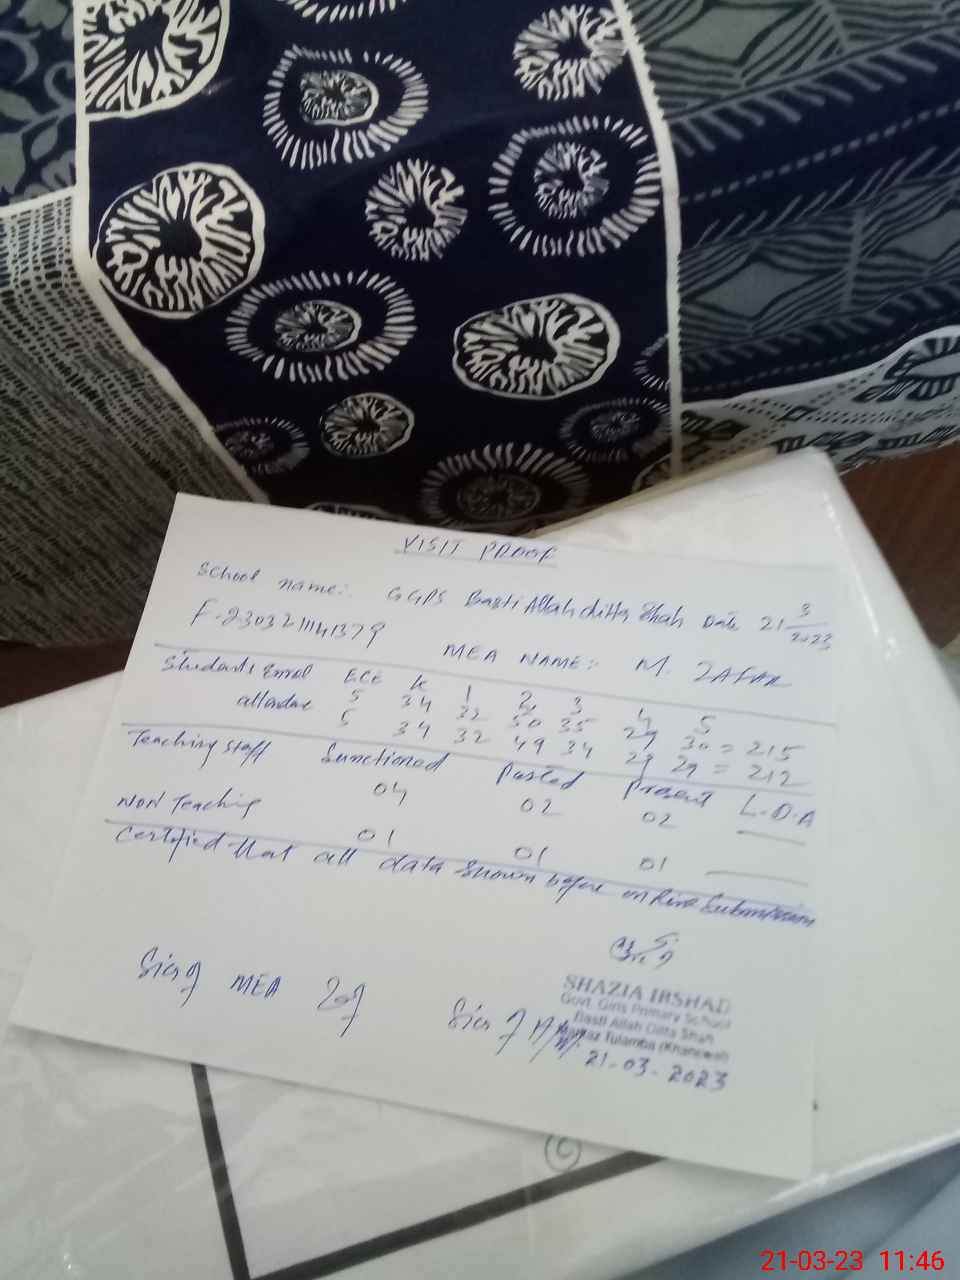 VISIT PROOF
School name:- GGPS Basti Allah ditta Shah Date 21/3/2023
F-2303211141379
MEA NAME:- M. ZAFAR
Students Enrol ECE K 1 2 3 4 5
5 34 32 50 35 29 30 = 215
attendance 5 34 32 49 34 29 29 = 212
Teaching staff Sunctioned Posted Present L.O.A
04 02 02 —
NON Teaching 01 01 01 —
Certified that all data shown before online Submission
SHAZIA IRSHAD
Govt. Girls Primary School
Basti Allah Ditta Shah
Markaz Tulamba (Khanewal)
Sign of MEA
Sign of
21-03-2023
21-03-23 11:46